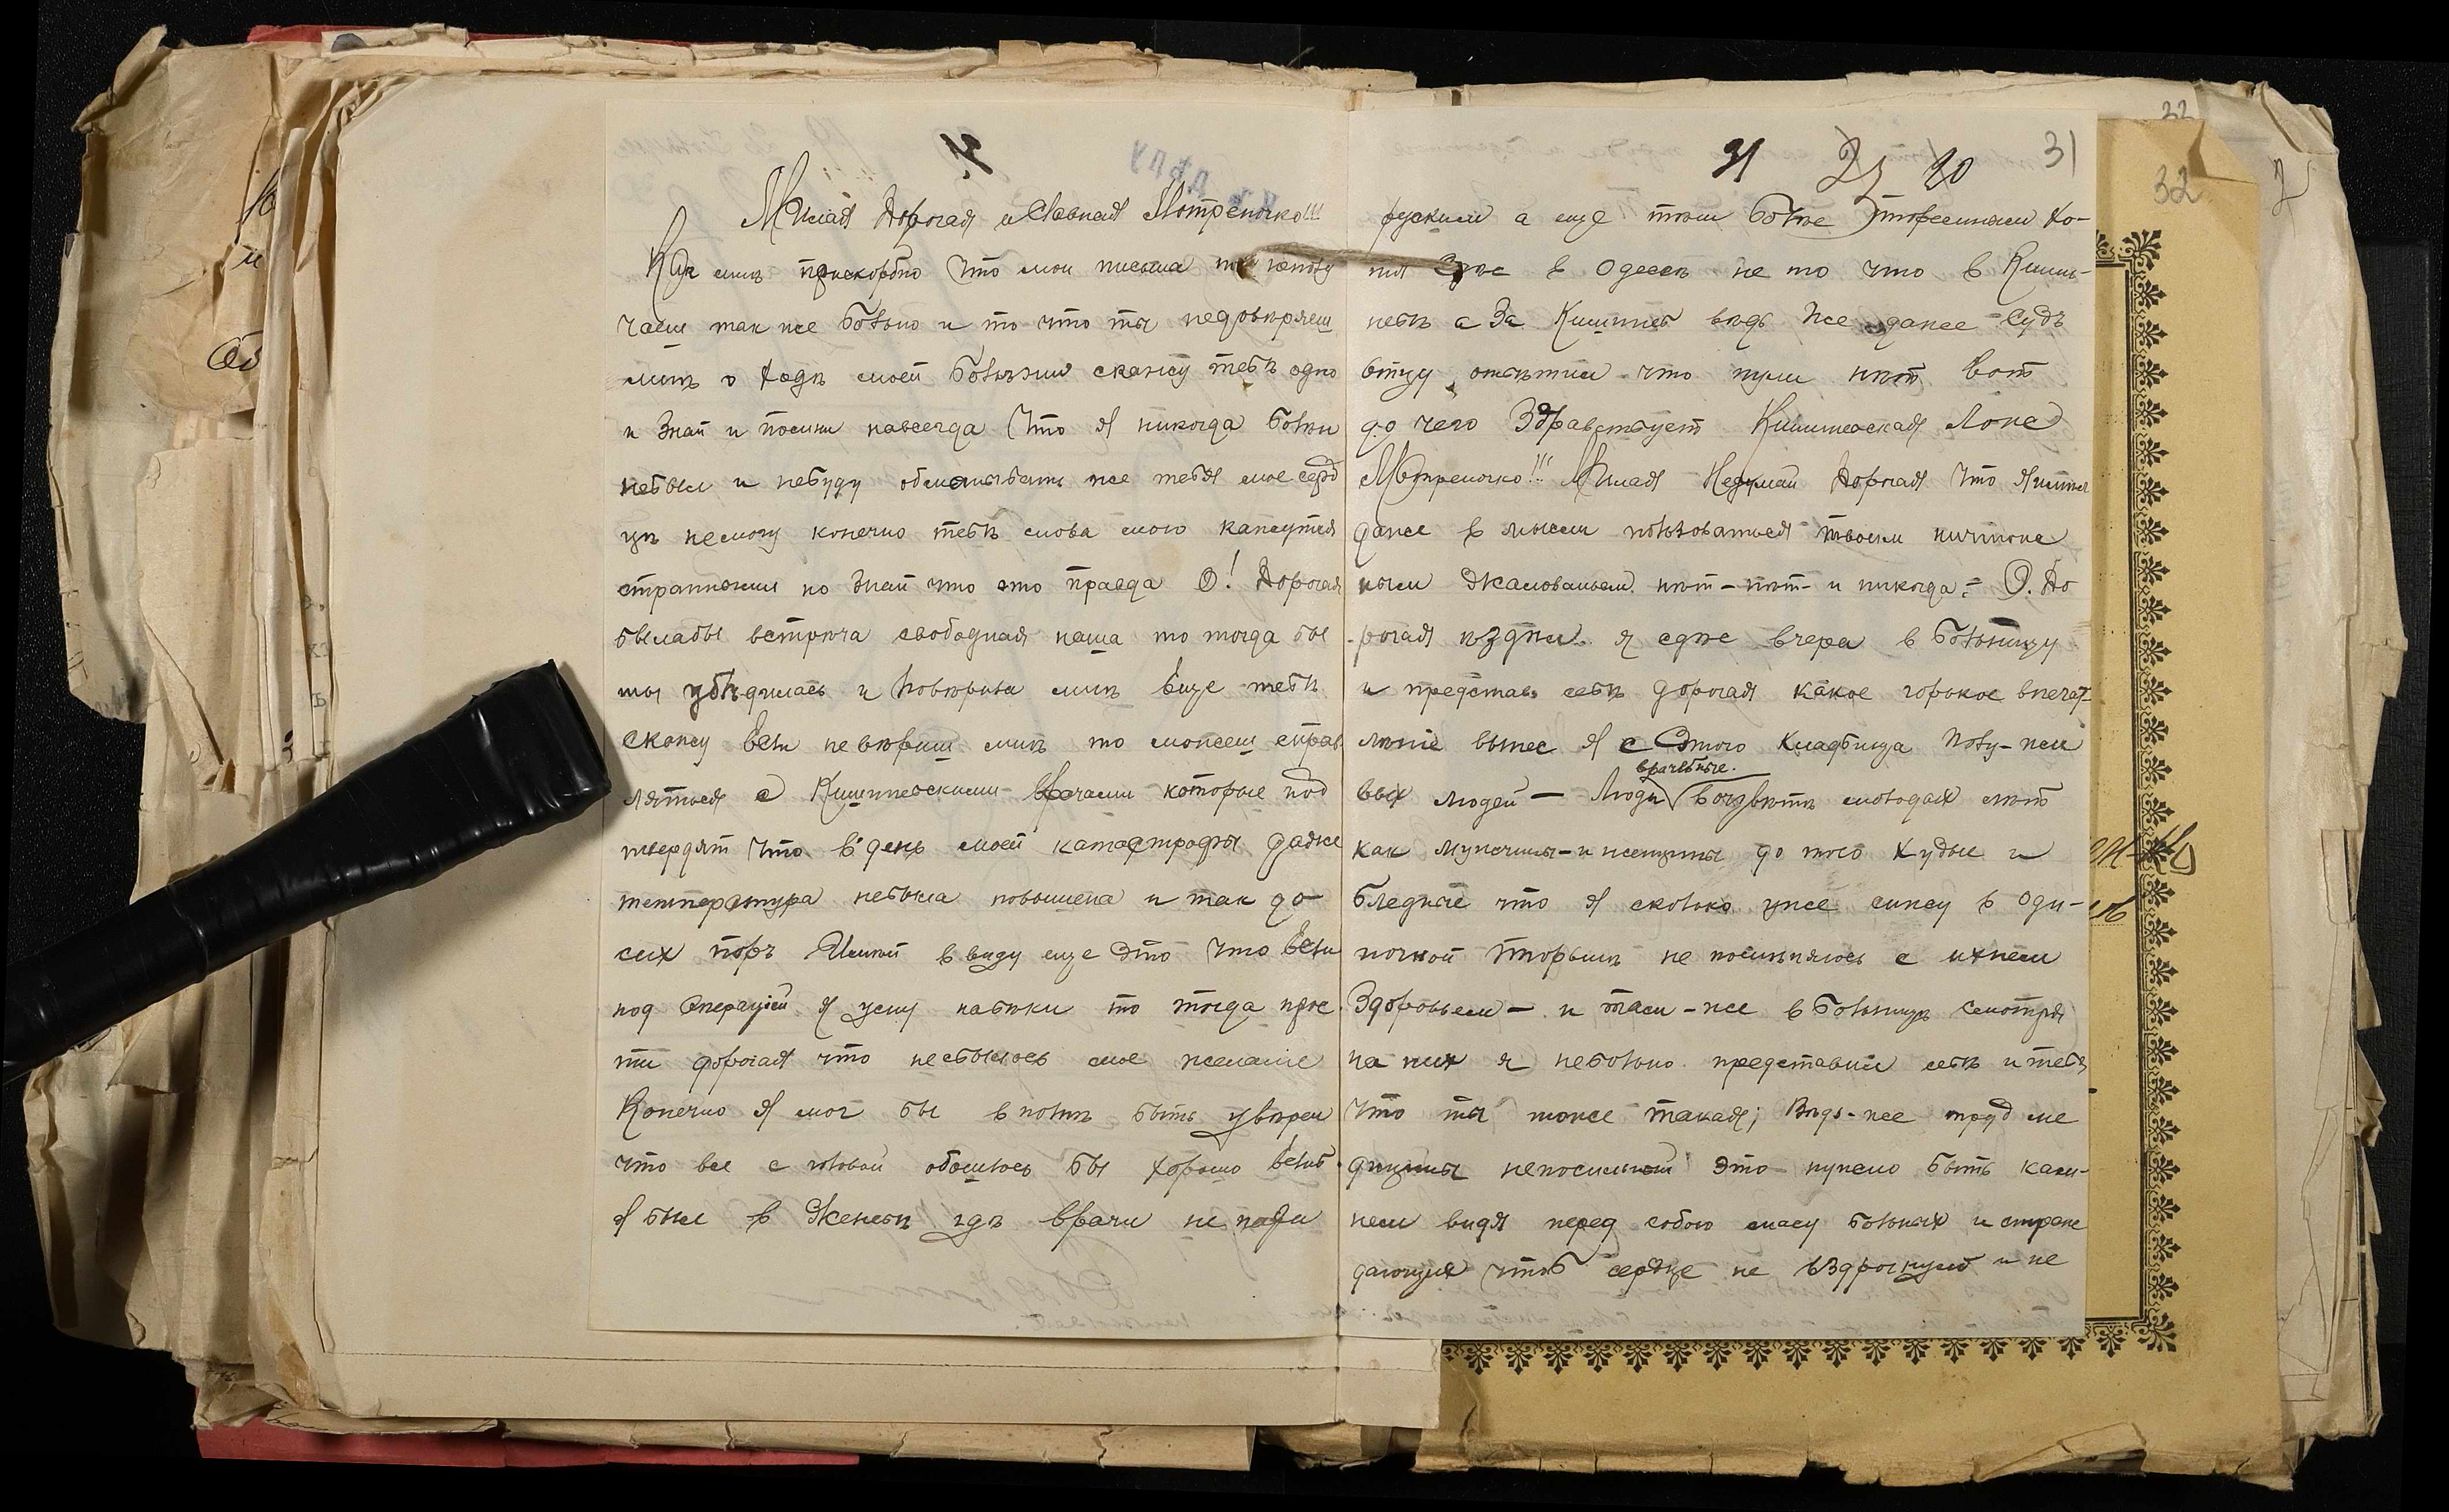 Милая Дорогая и Славная Мотреночко!!!
Как мнѣ прискорбно Что мои письма полу
чаеш так же больно и то что ты недовѣряеш
мнѣ о ходѣ моей болѣзни скажу тебѣ одно
и Знай и помни навсегда Что Я никогда болен
небыл и небуду обманывать же тебя мое серд
цѣ немогу конечно тебѣ слова мою кажутся
странными но Знай что это правда О! Дорогая
былабы встрѣча свободная наша то тогда бы
ты убѣдилась и повѣрила мнѣ Еще тебѣ
скажу Если невѣриш мнѣ то можеш справ
ляться с Кишиневскими Врачами которые под
твердят Что в день моей катастрофы даже
температура небыла повышена и так до
сих поръ Имѣй ввиду еще Это Что Если
под Операціей Я усну навѣки то тогда прос
ти дорогая что несбылось мое желаніе
Конечно Я мог бы вполнѣ быть увѣрен
что все с головой обошлось бы хорошо Еслиб
Я был в Женевѣ гдѣ врачи не
31 20 31
руским а еще тѣм болѣе Тюремным хо-
тя в Одессѣ не то что в Киши-
невѣ а За Кишинев вѣдь Же даже Судъ
что пули нѣт Вот
до чего Здравствует Кишиневская
Мотреночко!!! Милая Недумай Дорогая Что Я
даже в мысли пользоваться твоим ничтож
ным Жалованьем нѣт-нѣт- и никогда = О. До
рогая ѣздил я вчера в Больницу
и представ себѣ дорогая какое горькое впечат-
лѣніе вынес Я с Этого Кладбища Полу-жи
вых людей — Люди врачебные. молодых лѣт
как мужчины-и женщины до того худые и
бледные что Я сколько уже сижу в Оди-
ночной Тюрьмѣ не помѣняюсь с ихнем
Здоровьем — и там-же в Больницѣ смотря
на них я невольно представил себѣ и тебя
Что ты тоже такая; Вѣдь-же труд ме
дицины непосильный Это нужно быть кам-
нем видя перед собою масу больных и страж
дающих чтоб сердце не вздрогнуло и не
32
32